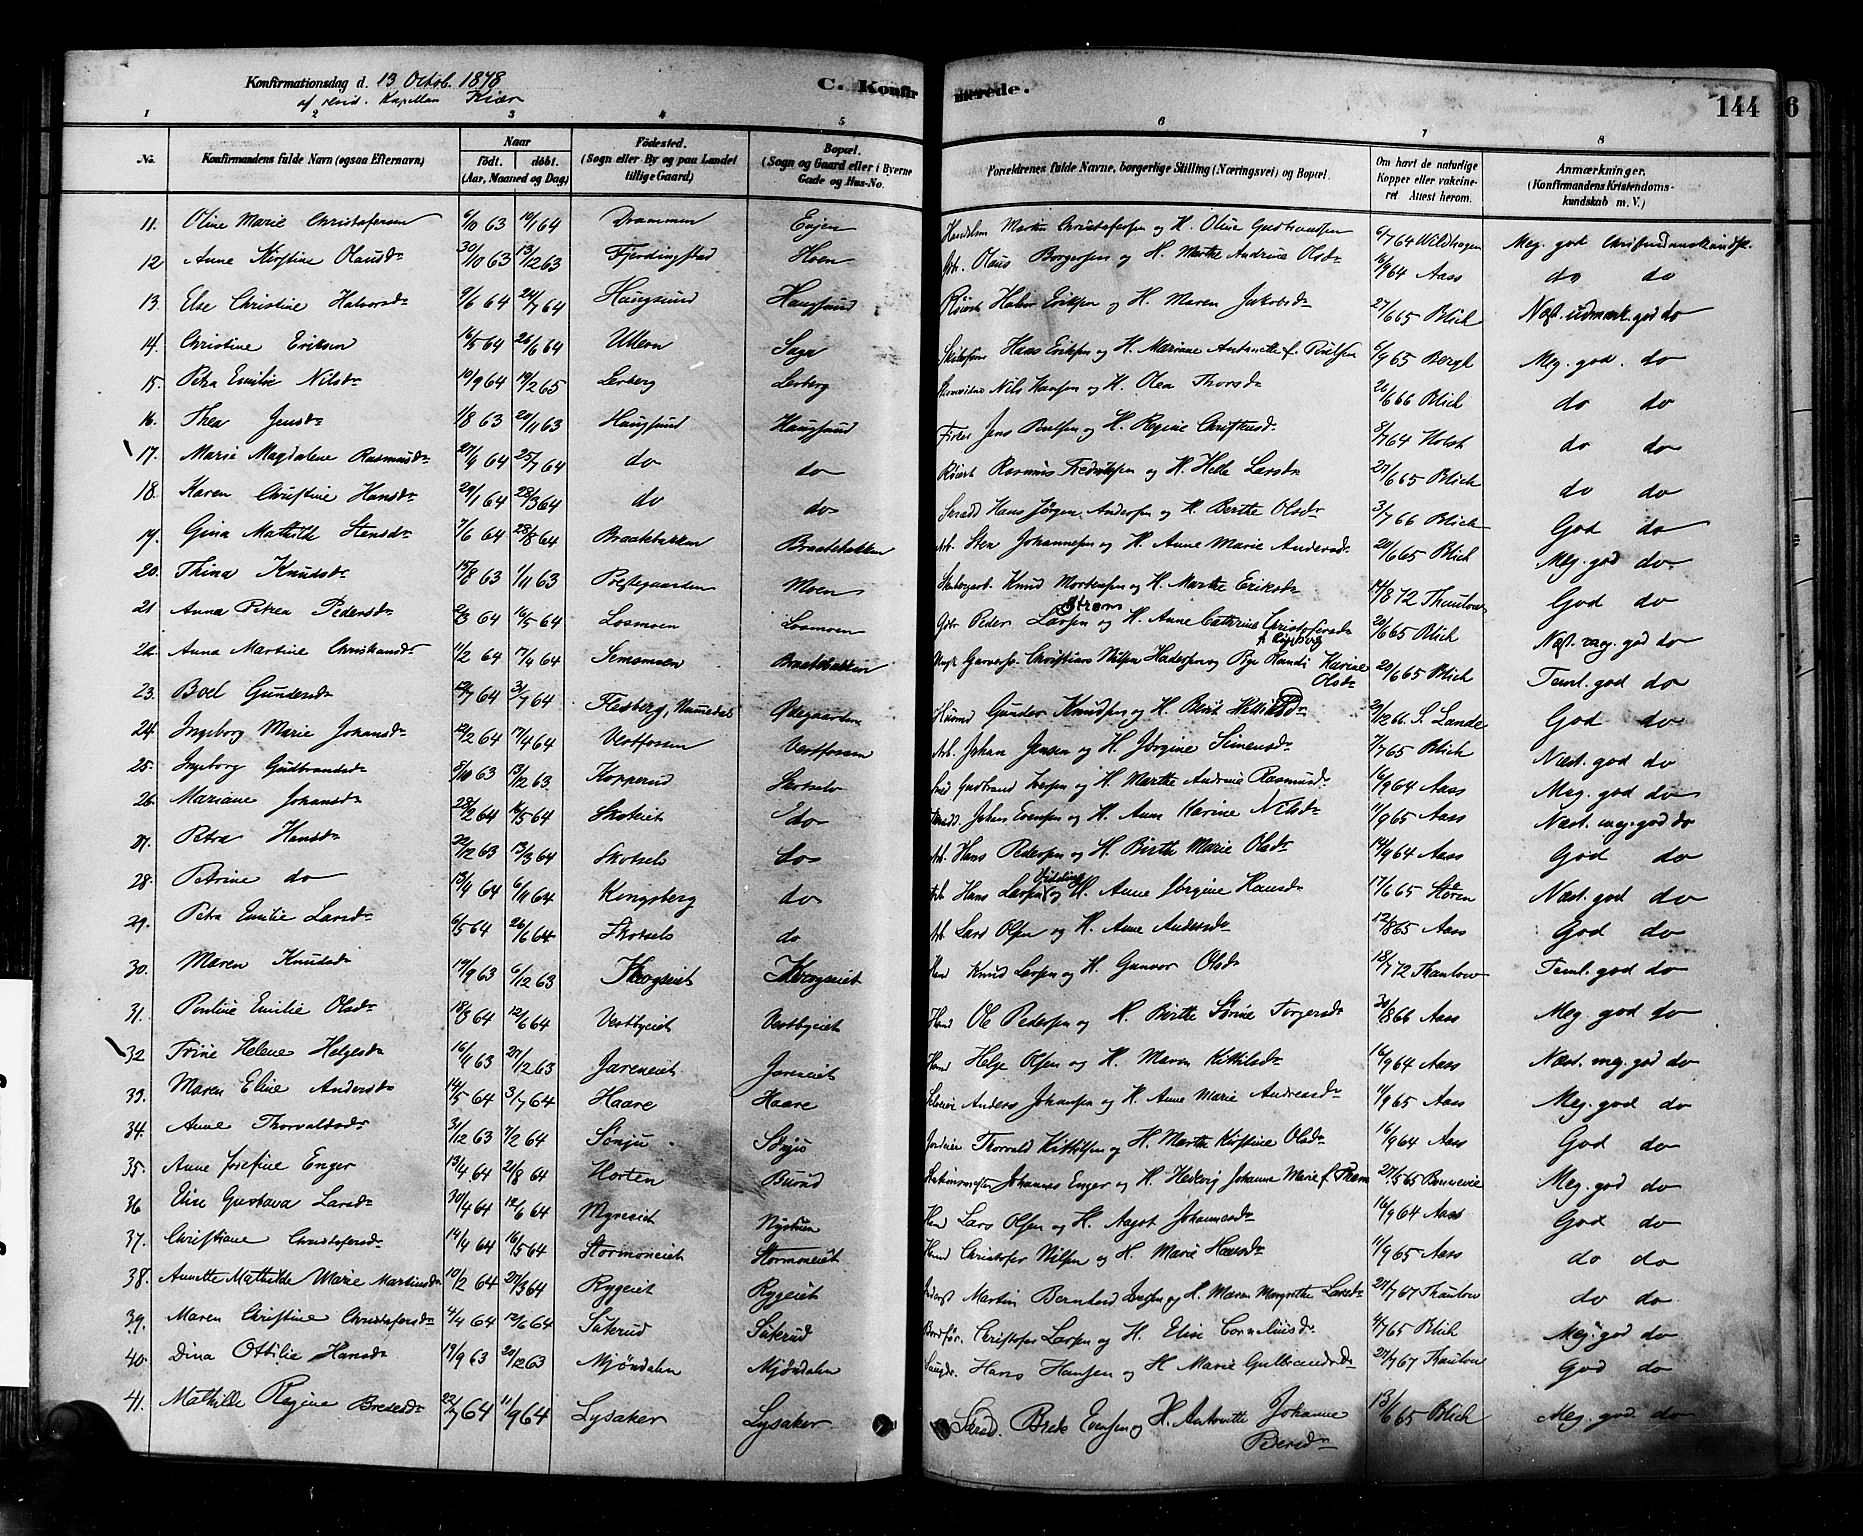 Konfirmationsdag d. 13 Octob. 1878
af resid. Kapellan Kiær
C. Konfirmerede.
144
6
1 2 3 4 5 6 7 8
No. Konfirmandens fulde Navn (ogsaa Efternavn) Naar født. døbt. (Aar, Maaned og Dag) Fødested. (Sogn eller By og paa Landet tillige Gaard) Bopæl. (Sogn og Gaard eller i Byerne Gade og Hus-No. Forældrenes fulde Navne, borgerlige Stilling (Næringsvei) og Bopæl. Om havt de naturlige Kopper eller vakcineret Attest herom. Anmærkninger. (Konfirmandens Kristendomskundskab m. V.)
11. Oline Marie Christofersen 6/10 63 10/1 64 Drammen Enjen Martin Christofersen og H. Oline 6/7 64 Wildhagen Meg. god
12 Anne Kirstine Olausdr 30/10 63 13/12 63 Fjerdingstad Hoen Olaus Borgersen og H. Marthe Andrine Olsdr 16/9 64 Aass do do
13. Else Christine Halvorsdr 9/6 64 24/7 64 Haugsund Haugsund Halvor Eriksen og H. Maren Jakobsdr 27/6 65 Blich Næst. udmærk. god do
14. Christine Eriksen 14/5 64 26/6 64 Ullern Saga Hans Eriksen og H. Mariane Antonette f. Poulsen 6/9 65 Bergh Meg. god. do
15. Petra Emilie Nilsdr 10/9 64 19/2 65 Lerberg Lerberg Nils Hansen og H. Olea Thorsdr 20/6 66 Blich do do
16. Thea Jensdr 1/8 63 20/11 63 Haugsund Haugsund Jens Poulsen og H. Regine Christensdr 8/7 64 Holst do do
17. Marie Magdalene Rasmusdr 27/4 64 25/7 64 do do Rasmus Fredriksen og H. Helle Larsdr 27/6 65 Blich do do
18. Karen Christine Hansdr 29/1 64 28/3 64 do do Hans Jørgen Andersen og H. Berthe Olsdr 3/7 66 Blich God do
19. Gina Mathilde Stensdr 7/6 64 28/8 64 Braatebakken Braatebakken Arb. Sten Johannesen og H. Anne Marie Andersdr 20/6 65 Blich Meg. god do
20. Thina Knudsdr 15/8 63 1/11 63 Prestegaarden Moen Knud Mortensen og H. Marthe Eriksdr 14/8 72 Thaulow God do
21 Anna Petrea Pedersdr 2/3 64 16/5 64 Losmoen Losmoen Peder Larsen Strøm og H. Anne Cathrine Christofersdr 20/6 65 Blich Næst. meg. god do
22. Anna Martine Christiansdr 11/2 64 17/4 64 Semsmoen Braatebakken Christian Nilsen og Randi Karine Olsdr 20/6 65 Blich Teml. god do
23. Boel Gundersdr 12/7 64 31/7 64 Flesberg, Numedal Ødegaarden Husmd Gunder Knudsen og H. Berit 21/12 66 S. Lande God do
24. Ingeborg Marie Johansdr 12/2 64 17/4 64 Vestfossen Vestfossen Arb. Johan Jensen og H. Jørgine Simensdr 7/7 65 Blich Næst. god do
25. Ingeborg Gudbrandsdr 8/10 63 13/12 63 Kopperud Skotselv Gudbrand Iversen og H. Marthe Andrine Rasmusdr 16/9 64 Aass Meg. god do
26. Mariane Johansdr 28/2 64 16/5 64 Skoteiet do Johan Evensen og H. Anne Karine Nilsdr 11/9 65 Aass Næst. meg. god do
27. Petra Hansdr 22/12 63 13/3 64 Skotselv do Arb. Hans Pedersen og H. Birthe Marie Olsdr 14/9 64 Aass God do
28. Petrine do 13/4 64 6/11 64 Kongsberg do Arb. Hans Larsen og H. Anne Jørgine Hansdr 17/6 65 Støren Næst. god do
29. Petra Emilie Larsdr 6/5 64 26/6 64 Skotselv do Arb. Lars Olsen og H. Anne Andersdr 12/8 65 Aass God do
30. Maren Knudsdr 19/9 63 6/12 63 Skorgeeiet Skorgeeiet Hmd Knud Larsen og H. Gunvor Olsdr 18/7 72 Thaulow Teml. god do
31. Pauline Emilie Olsdr 18/3 64 12/6 64 Vestbyeiet Vestbyeiet Hmd Ole Pedersen og H. Birthe Sørine Torgersdr 30/8 66 Aass Meg. god do
32 Trine Helene Helgesdr 16/4 63 27/12 63 Jareneiet Jareneiet Hmd Helge Olsen og H. Maren Kittilsdr 16/9 64 Aass Næst. meg. god do
33. Maren Eline Andersdr 14/5 64 3/7 64 Haare Haare Anders Johansen og H. Anne Marie Andreasdr 11/9 65 Aass Meg. god do
34. Anne Thorvaldsdr 31/12 63 7/2 64 Sønju Sønju Thorvald Kittilsen og H. Marthe Kirstine Olsdr 16/9 64 Aass God do
35. Anne Josefine Enger 13/4 64 21/8 64 Horten Burud Stationsmester Johannes Enger og H. Hedevig Johanne Marie f. Thom 27/5 65 Bonnevie Meg. god do
36 Elise Gustava Larsdr 30/4 64 12/6 64 Myreeiet Nystuen Hmd Lars Olsen og H. Aagot Johannesdr 16/9 64 Aass God do
37. Christiane Christofersdr 14/4 64 16/5 64 Stormoneiet Stormoneiet Hmd Christofer Nilsen og H. Marie Hansdr 11/9 65 Aass do do
38. Annette Mathilde Marie Martinsdr 10/2 64 27/3 64 Rygeeiet Rygeeiet Martin Bernhard Iversen og H. Maren Margrethe Larsdr 27/7 67 Thaulow do do
39. Maren Christine Christofersdr 4/4 64 12/6 64 Sáterud Sáterud Christofer Larsen og H. Elise Corneliusdr 4/7 65 Blich Meg. god do
40. Dina Ottilie Hansdr 19/9 63 20/12 63 Mjøndalen Mjøndalen Hans Hansen og H. Marie Gulbrandsdr 27/7 67 Thaulow God do
41. Mathilde Regine Bredesdr 22/7 64 11/9 64 Lysaker Lysaker Skræd. Brede Evensen og H. Antonette Johanne Berntdr 13/6 65 Blich Meg. god do